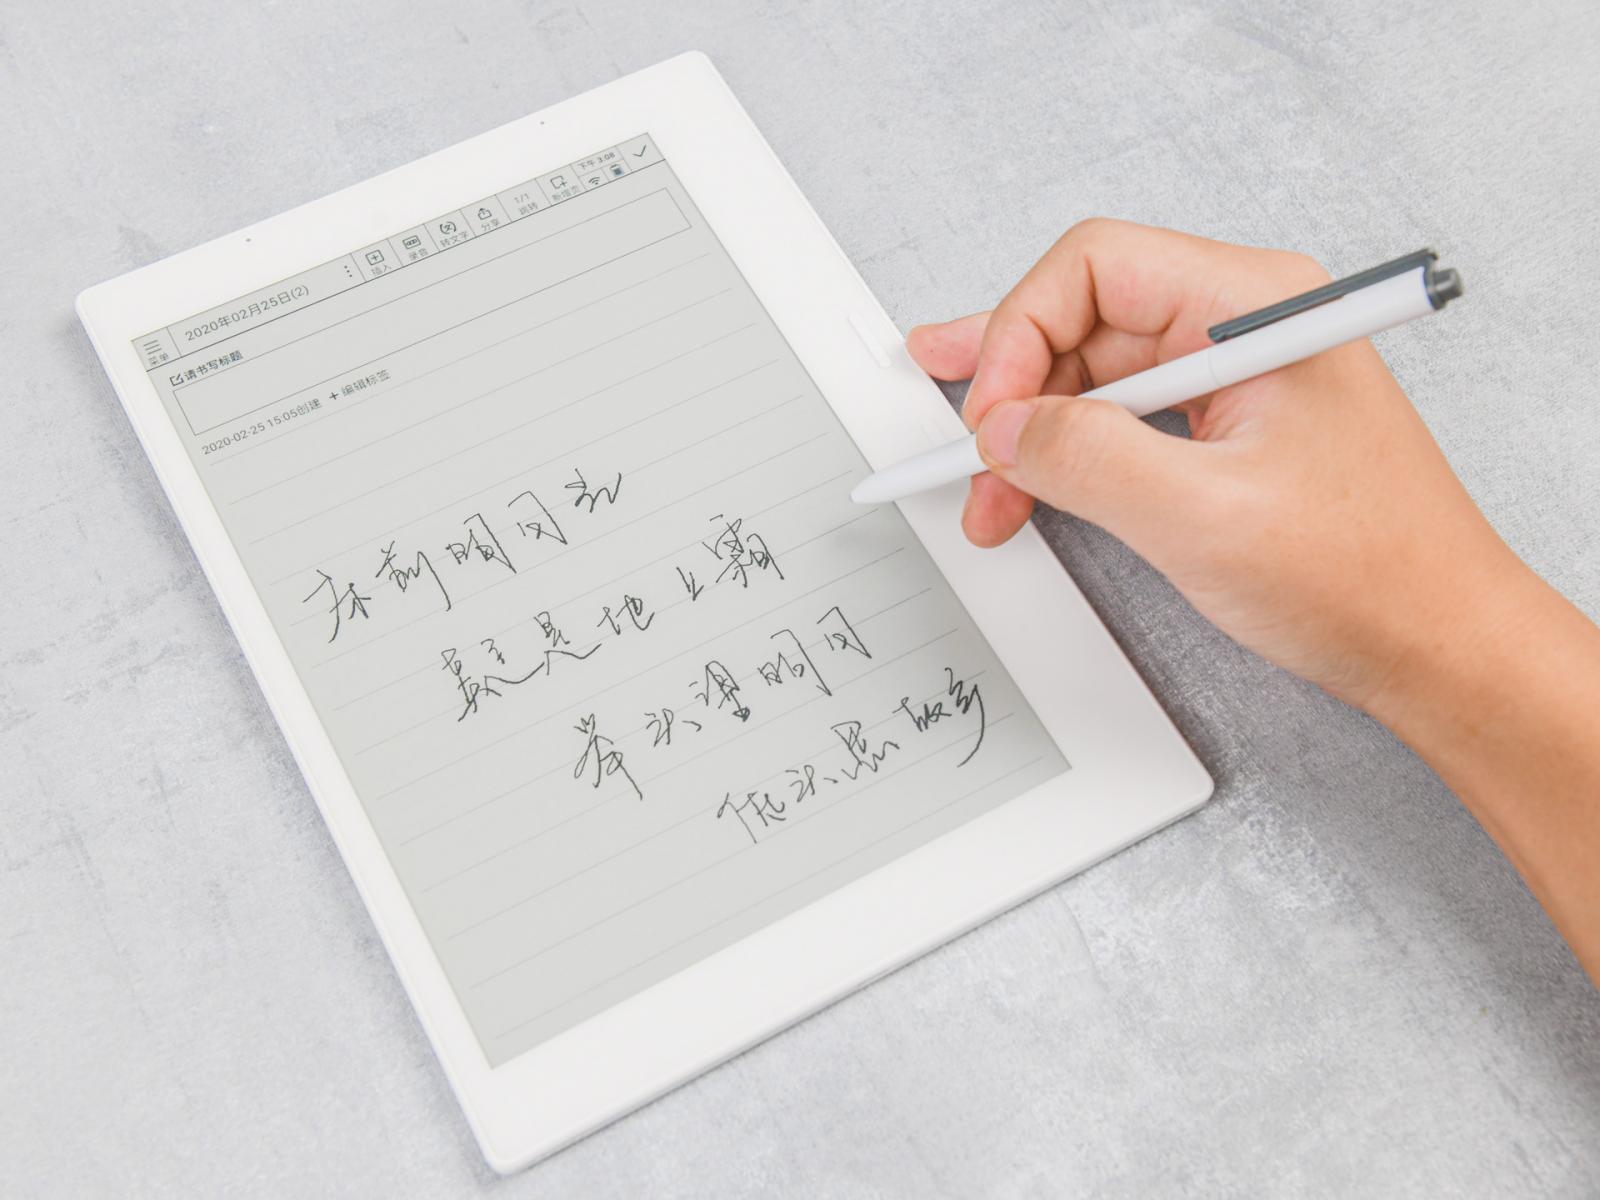 菜单 2020年02月25日(2) 插入 录音 转文字 分享 1/1 跳转 新增页 下午 3:08
请书写标题
2020-02-25 15:05创建 + 编辑标签
床前明月光
疑是地上霜
举头望明月
低头思故乡